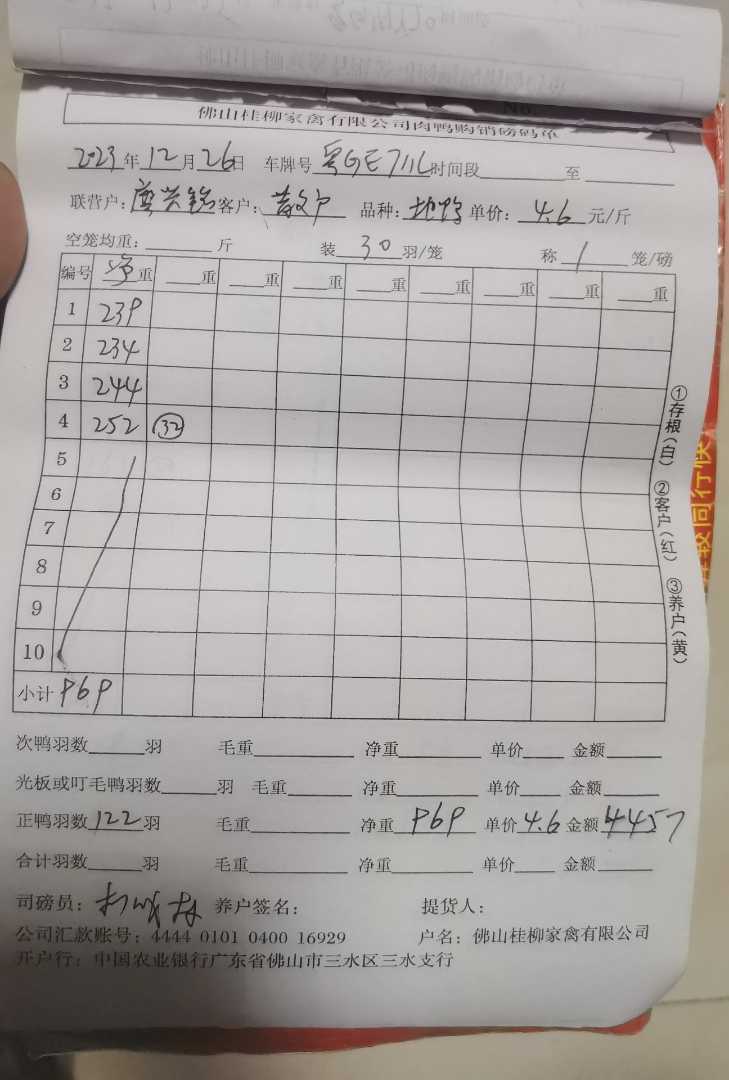 佛山桂柳家禽有限公司肉鸭购销磅码单
2023年12月26日 车牌号粤GE711L时间段 至
联营户: 客户:散户 品种: 单价:4.6元/斤
空笼均重: 斤 装30羽/笼 称1笼/磅
编号 净重 重 重 重 重 重 重 重
1 239
2 234
3 244
4 252 32
5
6
7
8
9
10
小计 969
①存根(白) ②客户(红) ③养户(黄)
次鸭羽数 羽 毛重 净重 单价 金额
光板或叮毛鸭羽数 羽 毛重 净重 单价 金额
正鸭羽数122羽 毛重 净重969 单价4.6金额4457
合计羽数 羽 毛重 净重 单价 金额
司磅员: 养户签名: 提货人:
公司汇款账号: 4444 0101 0400 16929 户名: 佛山桂柳家禽有限公司
开户行: 中国农业银行广东省佛山市三水区三水支行